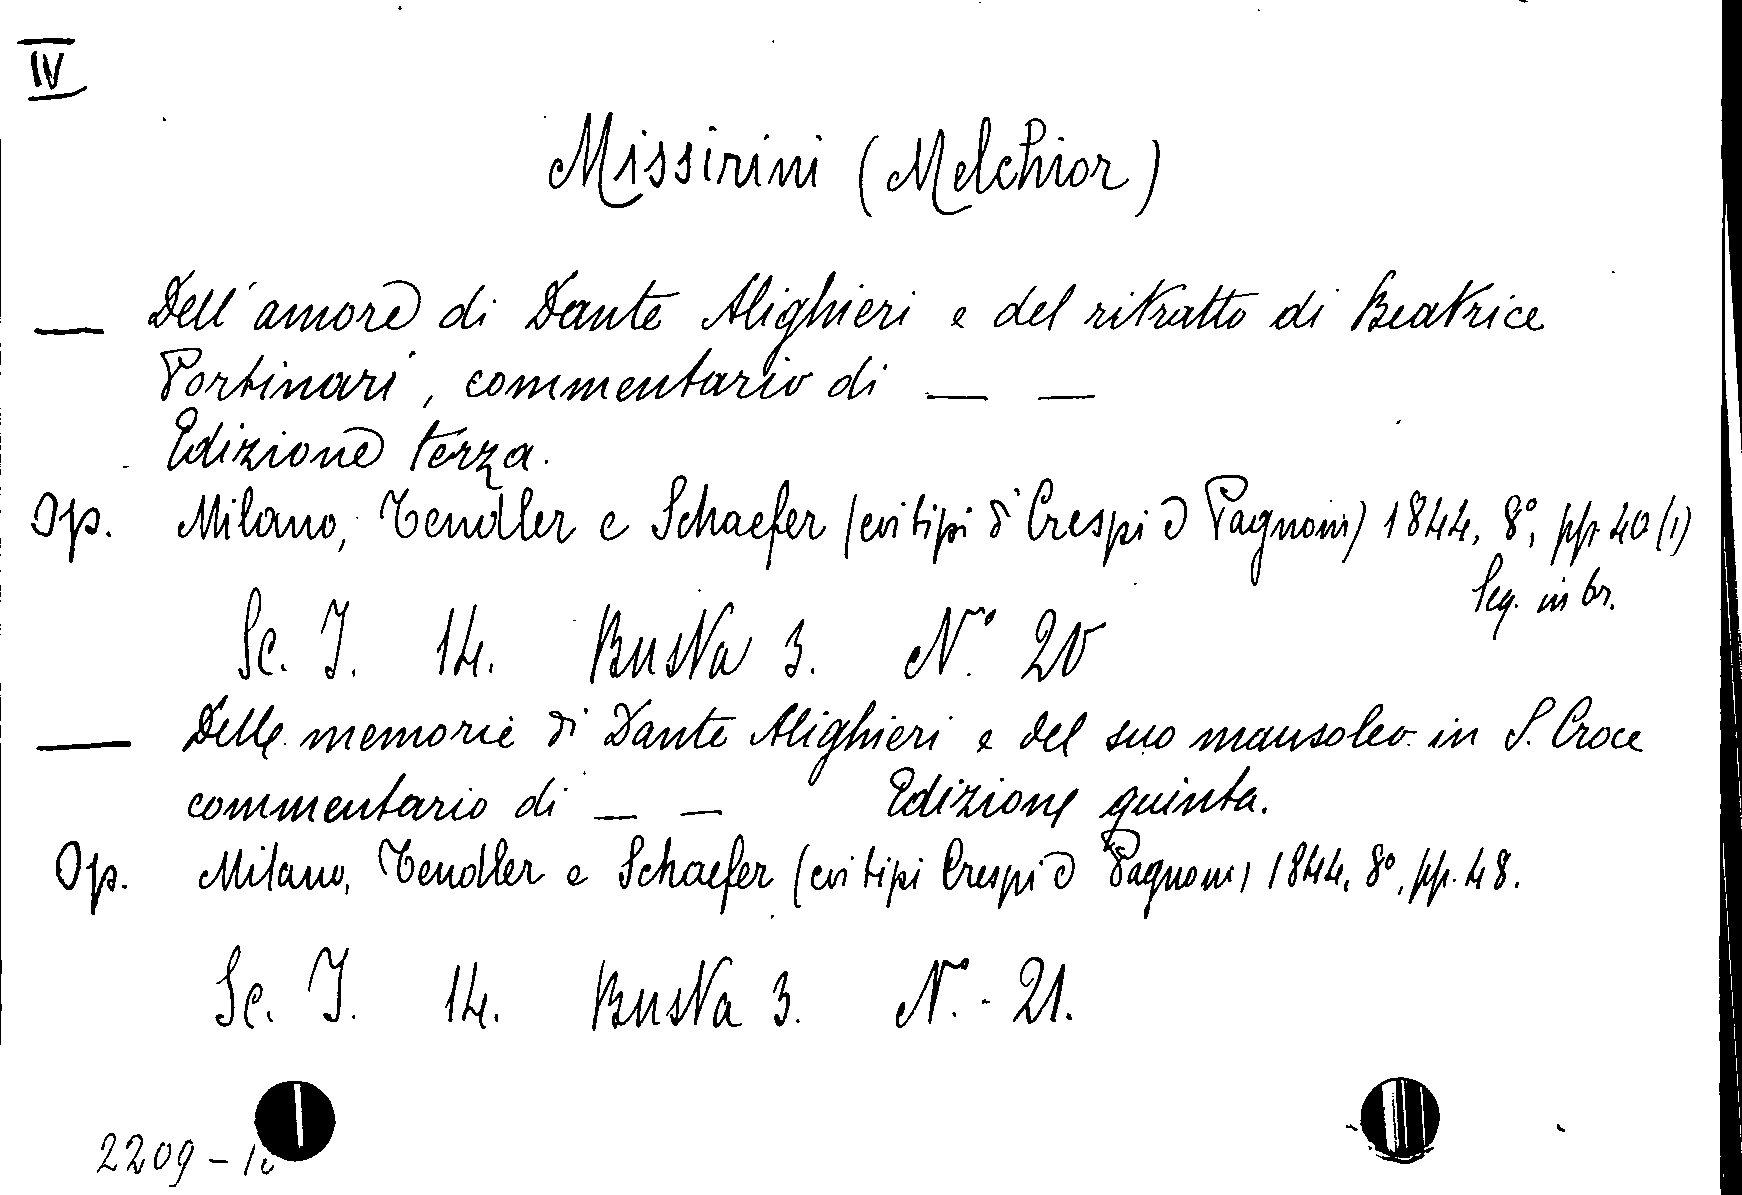 IV
Missirini (Melchior)
— Dell'amore di Dante Alighieri e del ritratto di Beatrice
Portinari, commentario di — —
Edizione terza.
Op. Milano, Tendler e Schaefer (coi tipi di Crespi e Pagnoni) 1844, 8°, pp. 40 (1)
Leg. in br.
Sc. I. 14. Busta 3. N.° 20
— Delle memorie di Dante Alighieri e del suo mausoleo in S. Croce
commentario di — — Edizione quinta.
Op. Milano, Tendler e Schaefer (coi tipi Crespi e Pagnoni) 1844, 8°, pp. 48.
Sc. I. 14. Busta 3. N.° 21.
2209 -